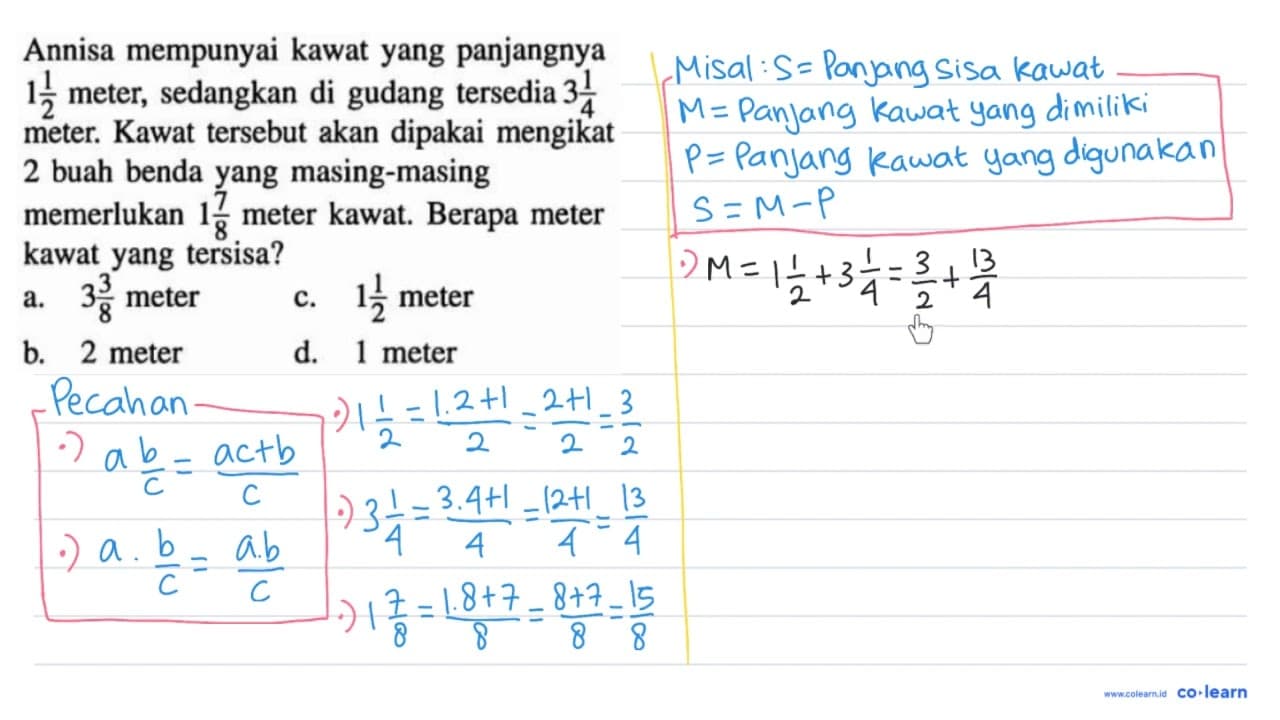 Annisa mempunyai kawat yang panjangnya
1 1/2 meter, sedangkan di gudang tersedia 3 1/4
meter. Kawat tersebut akan dipakai mengikat
2 buah benda yang masing-masing
memerlukan 1 7/8 meter kawat. Berapa meter
kawat yang tersisa?
a. 3 3/8 meter c. 1 1/2 meter
b. 2 meter d. 1 meter
Pecahan
•) a b/c = ac+b/c
•) a . b/c = a.b/c
•) 1 1/2 = 1.2+1/2 = 2+1/2 = 3/2
•) 3 1/4 = 3.4+1/4 = 12+1/4 = 13/4
•) 1 7/8 = 1.8+7/8 = 8+7/8 = 15/8
Misal : S = Panjang sisa kawat
M = Panjang kawat yang dimiliki
P = Panjang kawat yang digunakan
S = M - P
•) M = 1 1/2 + 3 1/4 = 3/2 + 13/4
www.colearn.id co•learn